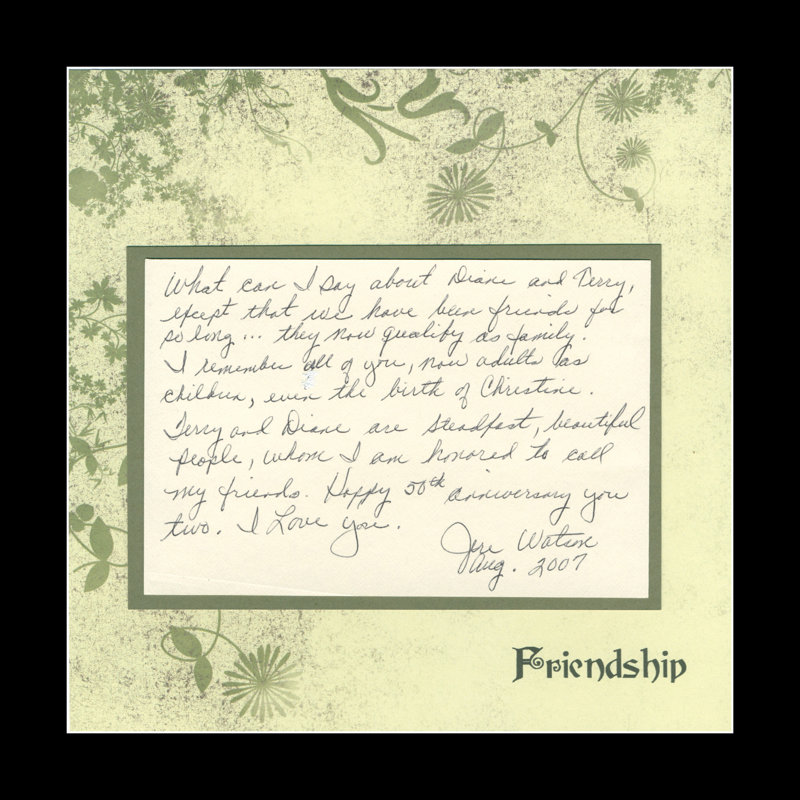 What can I say about Diane and Terry,
except that we have been friends for
so long... they now qualify as family.
I remember all of you, now adults as
children, even the birth of Christine.
Terry and Diane are steadfast, beautiful
people, whom I am honored to call
my friends. Happy 50th anniversary you
two. I Love you.
Jere Watson
Aug. 2007
Friendship